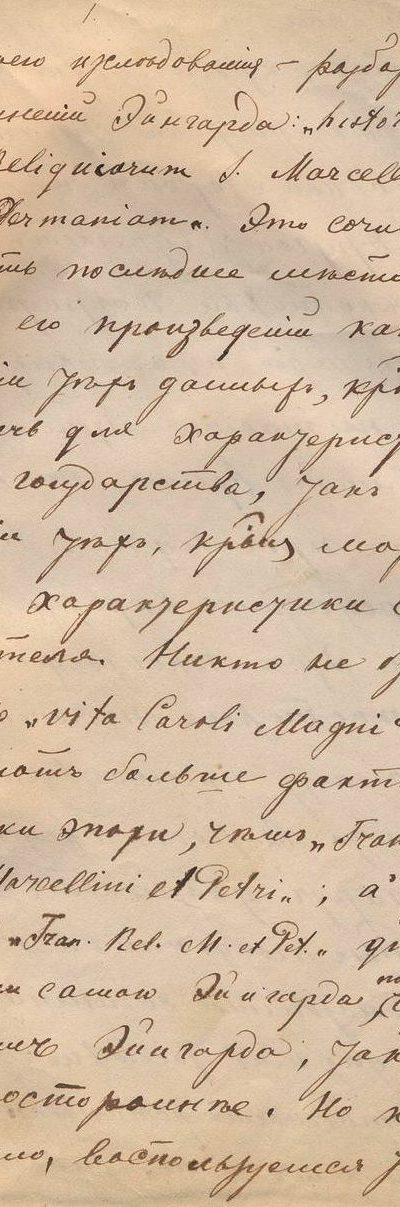 его изслѣдованія – разбор
неній Эйнгарда: „histor
Reliquiarum S. Marcell
Germaniam“. Это сочи
ть послѣднее мѣсто
его произведеній ка
іи тѣхъ данныхъ, кр
для характерист
государства, такъ
тѣхъ, мо
характеристики
теля. Никто не
„vita Caroli Magni“
ютъ больше факт
ки эпохи, чѣмъ „Tran
Marcellini et Petri“; а
„Tran. Rel. M. et Pet.“
самою Эйнгарда,
Эйнгарда, так
осторонне. Но к
ло, воспользуемся